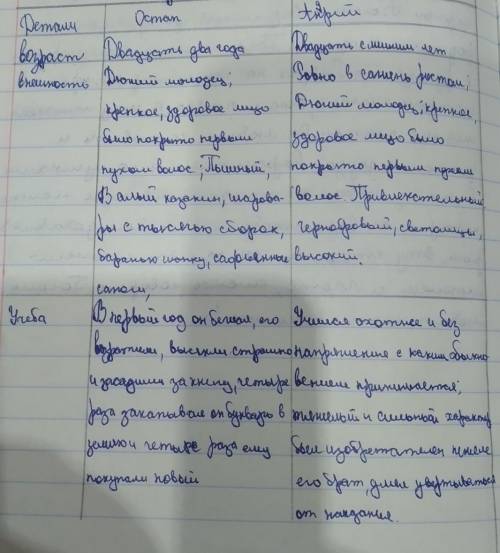 Детали Остап Андрий
возраст Двадцать два года Двадцать с лишним лет
внешность Дюжий молодец; Ровно в сажень ростом;
крепкое, здоровое лицо Дюжий молодец; крепкое,
было покрыто первым здоровое лицо было
пухом волос; Пышный; покрыто первым пухом
В алый казакин, шарова- волос. Привлекательный
ры с тысячью сборок, чернобровый, светолицы,
баранью шапку, сафьянные высокий.
сапоги,
Учеба В первый год он бежал, его Учился охотнее и без
возратили, высекли страшно напряжение с каким обыкно
и засадили за книгу, четыре вением принимается;
раза закапывал он букварь в тяжелый и сильной характер
землю и четыре раза ему был изобретателен нежели
покупали новый его брат, умел увертываться
от накдания.